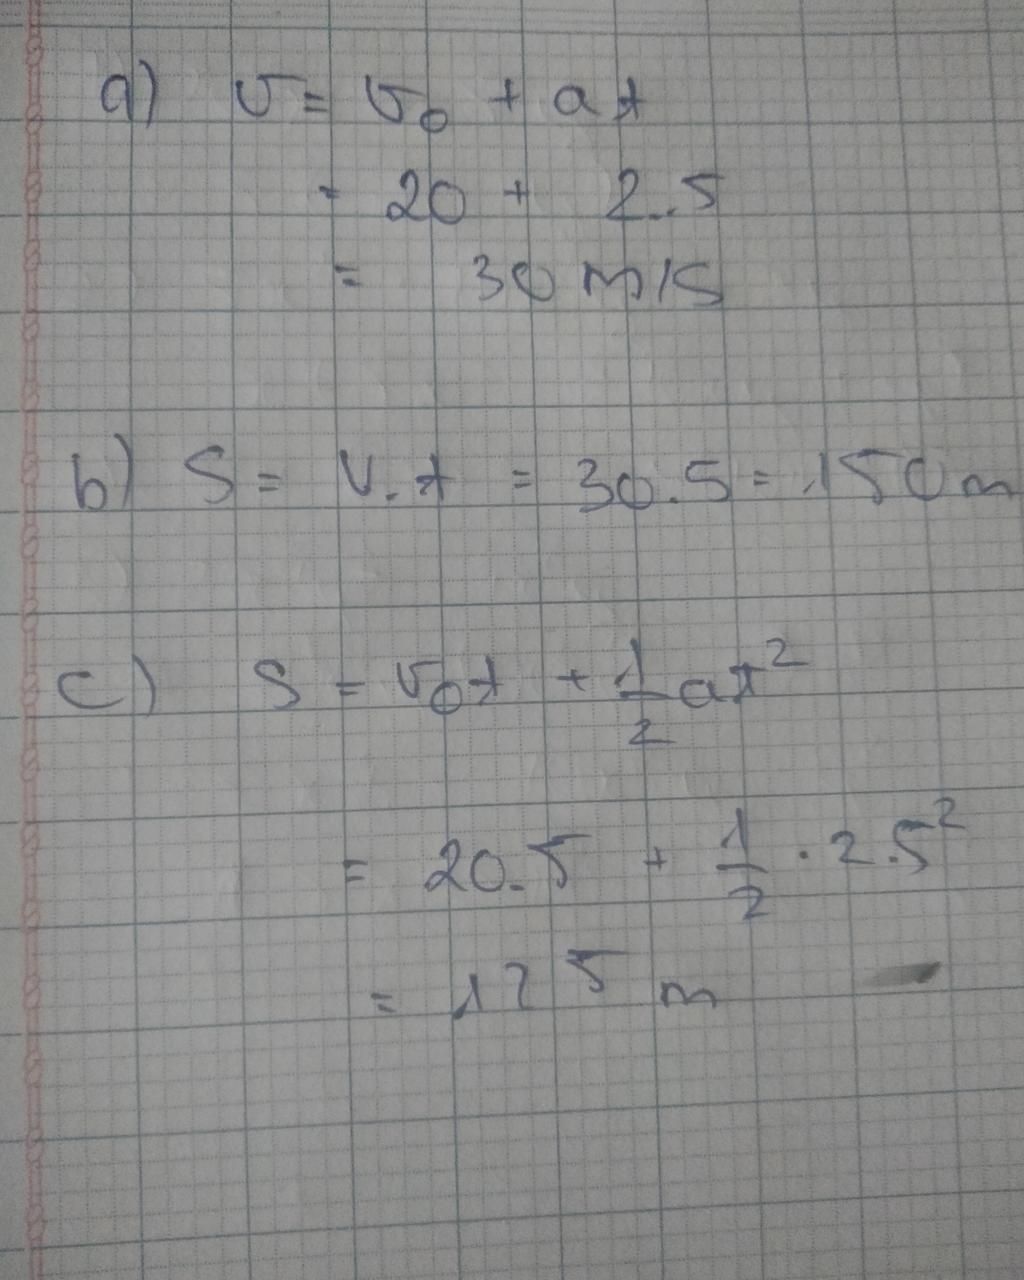 a) v = v₀ + at
= 20 + 2.5
= 30 m/s
b) S = V.t = 30.5 = 150 m
c) S = v₀t + 1/2 at²
= 20.5 + 1/2 · 2.5²
= 125 m